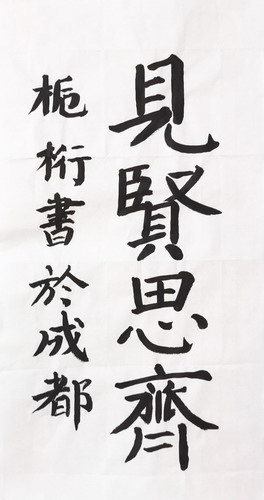 見賢思齊
栀桁書於成都